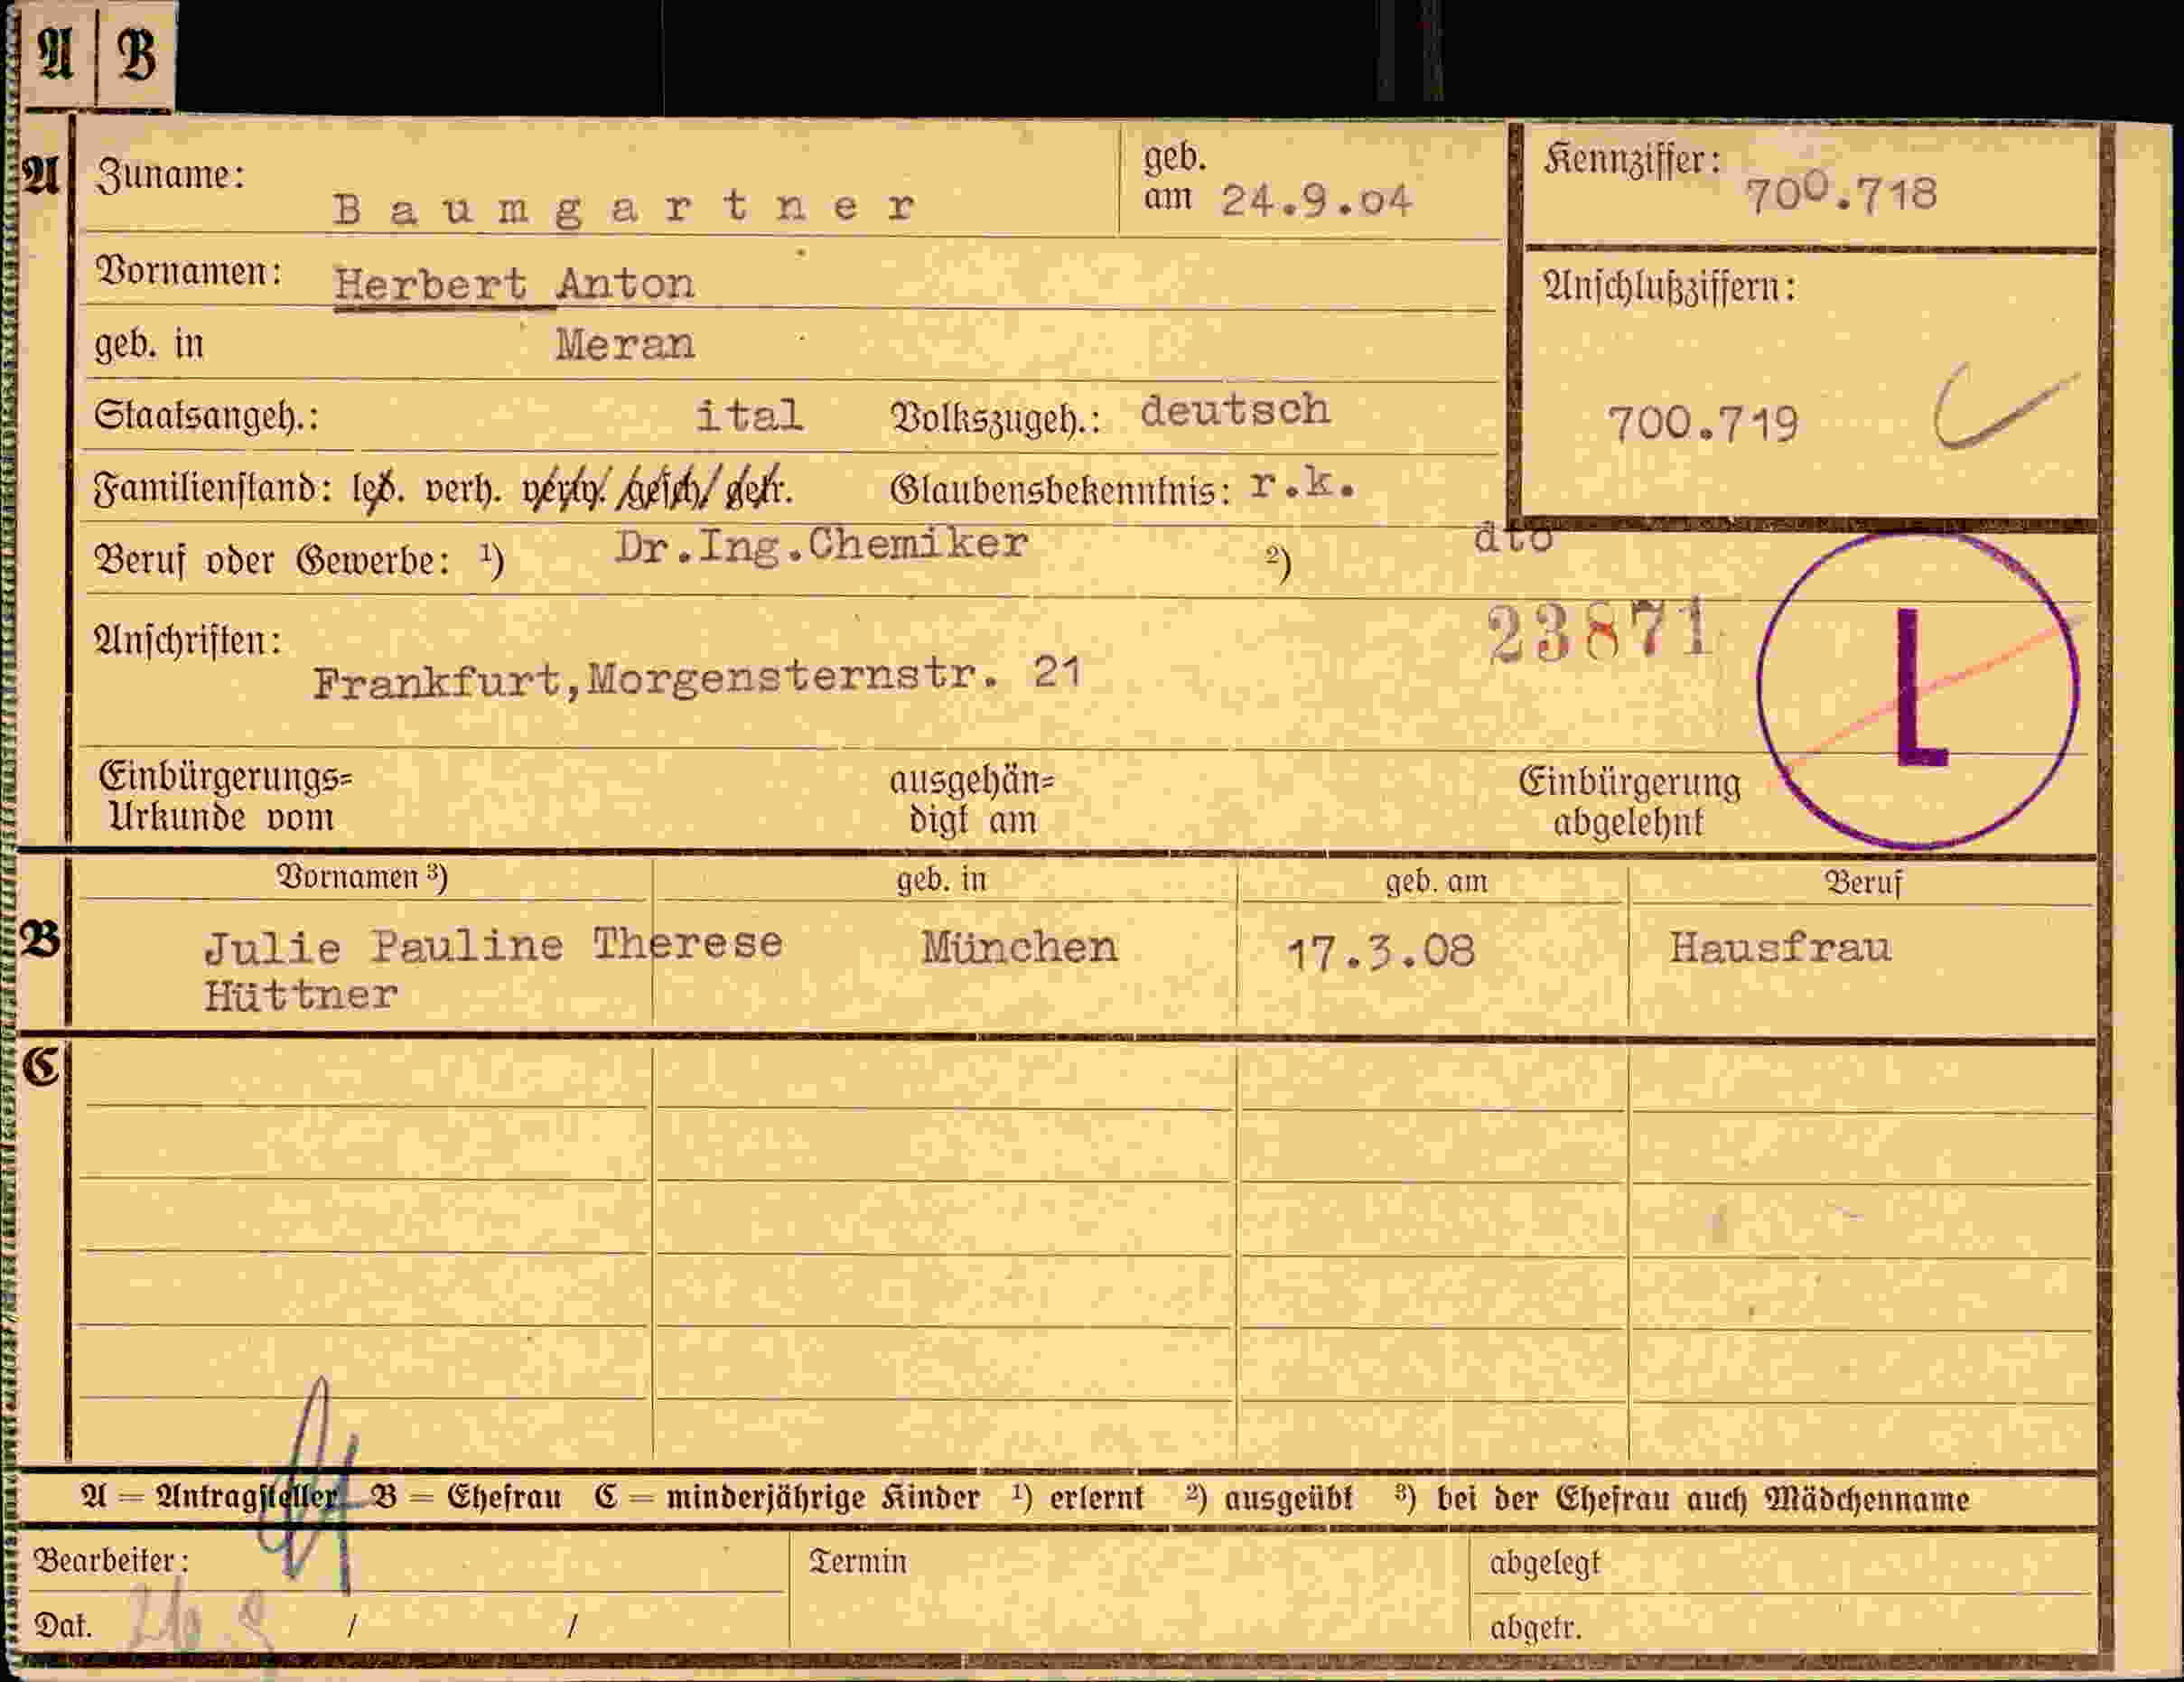 A B
A Zuname: Baumgartner geb. am 24.9.04 Kennziffer: 700.718
Vornamen: Herbert Anton Anschlußziffern:
geb. in Meran
Staatsangeh.: ital Volkszugeh.: deutsch 700.719
Familienstand: led. verh. verw. gesch. getr. Glaubensbekenntnis: r.k.
Beruf oder Gewerbe: ¹) Dr.Ing.Chemiker ²) dto
23871
Anschriften:
Frankfurt,Morgensternstr. 21
L
Einbürgerungs= ausgehän= Einbürgerung
Urkunde vom digt am abgelehnt
Vornamen ³) geb. in geb. am Beruf
B Julie Pauline Therese München 17.3.08 Hausfrau
Hüttner
C
A = Antragsteller B = Ehefrau C = minderjährige Kinder ¹) erlernt ²) ausgeübt ³) bei der Ehefrau auch Mädchenname
Bearbeiter: Termin abgelegt
Dat. / / abgetr.